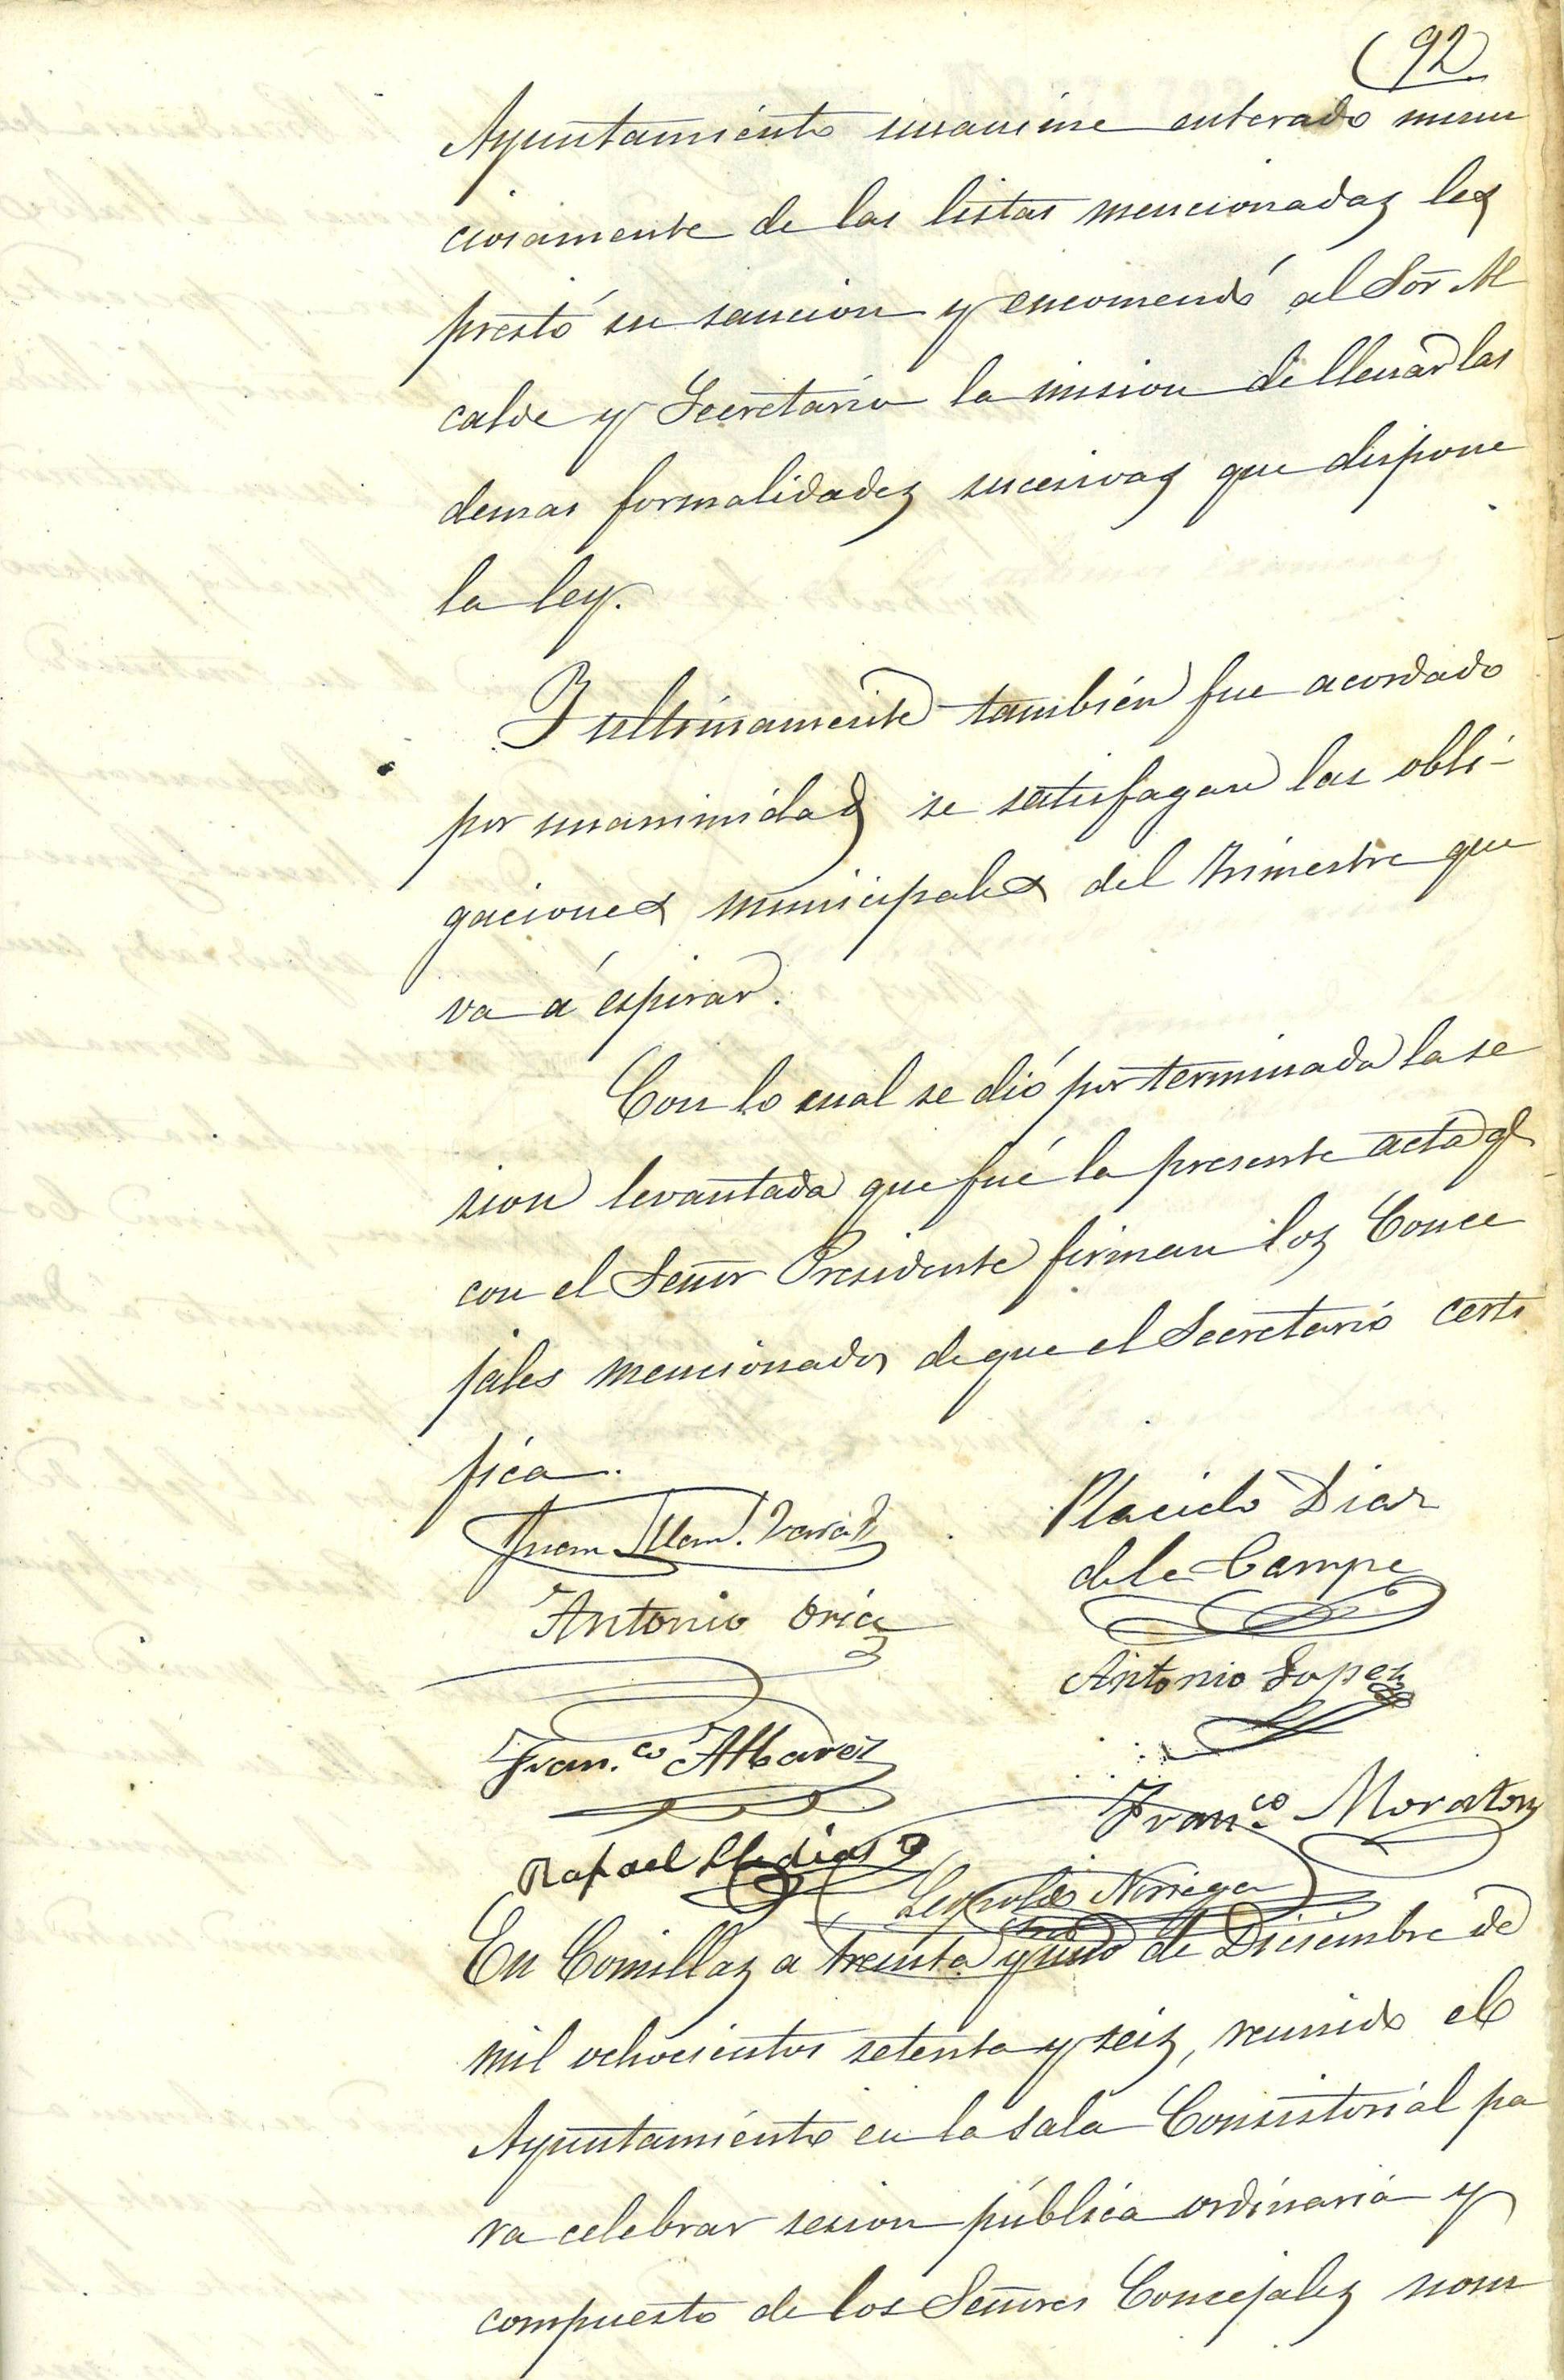 (92
Ayuntamiento unanime enterado minu
ciosamente de las listas mencionadas les
prestó su sancion y encomendó al Sor Al
calde y Secretario la mision de llenar las
demas formalidades sucesivas que dispone
la ley.
Y ultimamente también fue acordado
por unanimidad se satisfagan las obli-
gaciones municipales del trimestre que
va á espirar.
Con lo cual se dió por terminada la se
sion levantada que fué la presente acta q.
con el Señor Presidente firman los Conce
jales mencionados de que el Secretario certi
fica.
Juan
Placido Diaz
de la Campa
Antonio Oria
Antonio Lopez
Fran.co Albarez
Franco Moraton
Rafael
Leopoldo Noriega
Srio
En Comillas a treinta y uno de Diciembre de
mil ochocientos setenta y seis, reunido el
Ayuntamiento en la sala Consistorial pa
ra celebrar sesion pública ordinaria y
compuesto de los Señores Concejales nom